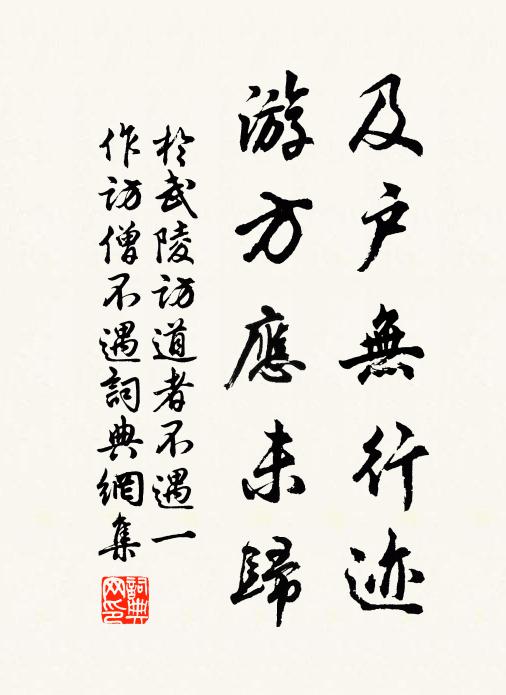 及户無行迹
游方應未歸
於武陵訪道者不遇一
作訪僧不遇詞典網集
詞典
网印